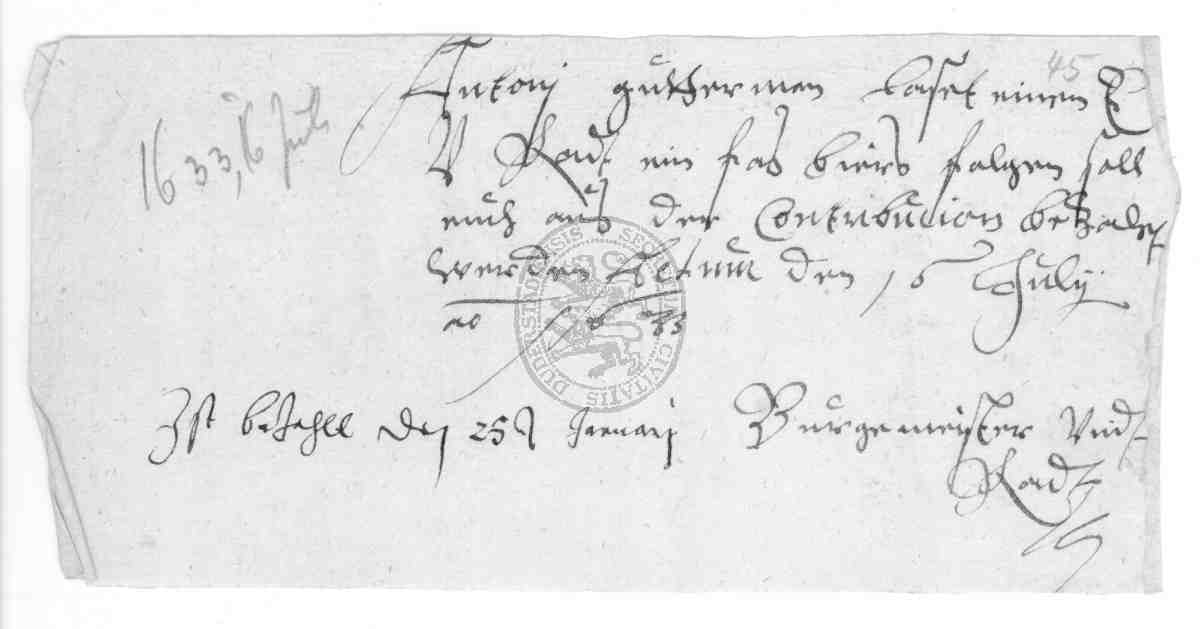 45
1633, 16 Juli
Antonj gutherman laset einem E
V Radt ein fas biers folgen soll
euch aus der Contribucion bezalet
werden Actum den 16 July
ao 1633
Ist bezahll den 25t Jenuarj
Burgemeister Vnd
Radt
SECRETUM CIVITATIS DUDENSTADENSIS